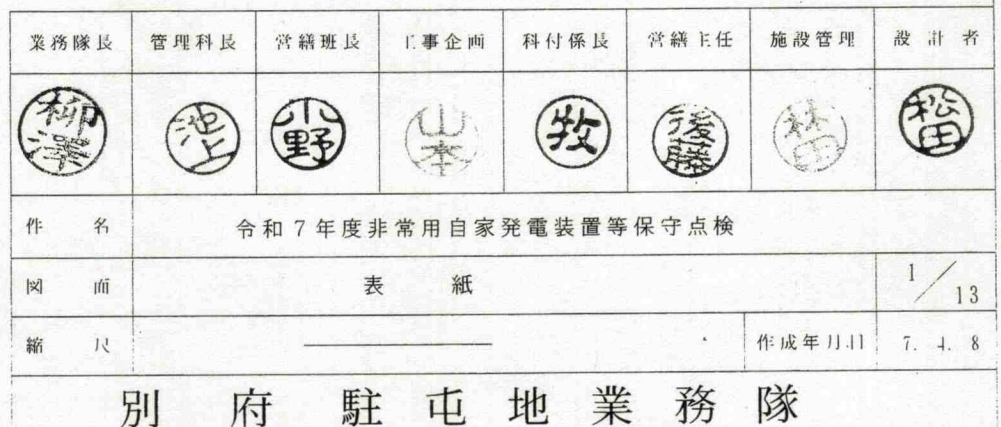 業務隊長 管理科長 営繕班長 工事企画 科付係長 営繕主任 施設管理 設計者
柳澤 池上 小野 山本 牧 後藤 林田 松田
件名 令和7年度非常用自家発電装置等保守点検
図面 表紙 1/13
縮尺 作成年月日 7.4.8
別府駐屯地業務隊